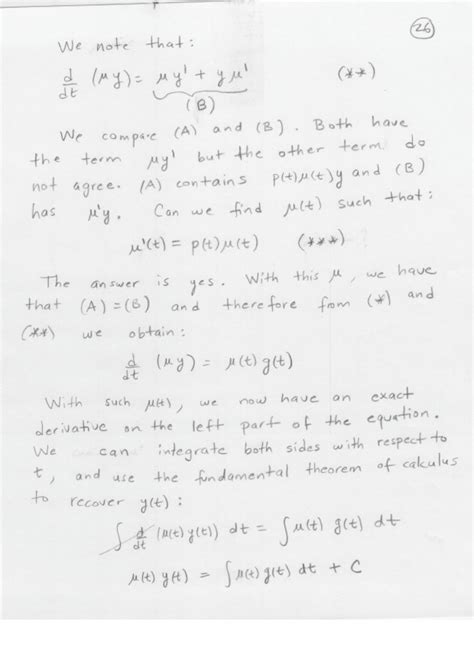 26
We note that:
d/dt (μy) = μy' + yμ' (**)
(B)
We compare (A) and (B). Both have
the term μy' but the other term do
not agree. (A) contains p(t)μ(t)y and (B)
has μ'y. Can we find μ(t) such that:
μ'(t) = p(t)μ(t) (***)
The answer is yes. With this μ, we have
that (A) = (B) and therefore from (*) and
(**) we obtain:
d/dt (μy) = μ(t)g(t)
With such μ(t), we now have an exact
derivative on the left part of the equation.
We can integrate both sides with respect to
t, and use the fundamental theorem of calculus
to recover y(t):
∫ d/dt (μ(t)y(t)) dt = ∫ μ(t) g(t) dt
μ(t) y(t) = ∫ μ(t) g(t) dt + C